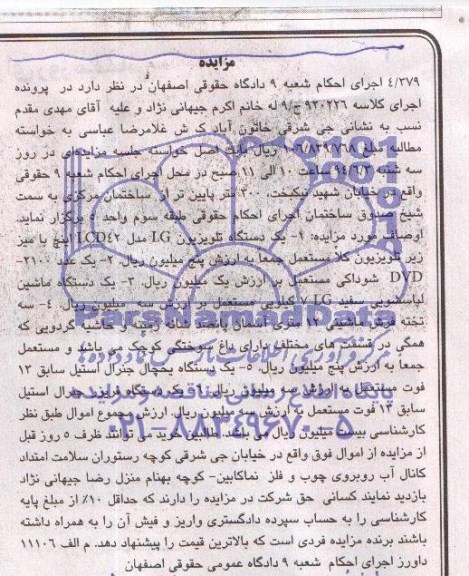 مزایده
۴/۳۷۹ اجرای احکام شعبه ۹ دادگاه حقوقی اصفهان در نظر دارد در پرونده
اجرای کلاسه ۹۳۰۲۲۶ ج/۹ له خانم اکرم جیهانی نژاد و علیه آقای مهدی مقدم
نسب به نشانی جی شرقی خاتون آباد ک ش غلامرضا عباسی به خواسته
مطالبه مبلغ ریال بابت اصل خواسته جلسه مزایده‌ای در روز
سه شنبه ساعت ۱۰ الی ۱۱ صبح در محل اجرای احکام شعبه ۹ حقوقی
واقع در خیابان شهید نیکبخت، ۳۰۰ متر پایین تر از ساختمان مرکزی به سمت
شیخ صدوق ساختمان اجرای احکام حقوقی طبقه سوم واحد ۵ برگزار نماید.
اوصاف مورد مزایده: ۱- یک دستگاه تلویزیون LG مدل LCD۴۲ اینچ با میز
زیر تلویزیون کلا مستعمل جمعا به ارزش پنج میلیون ریال ۲- یک عدد
DVD شوداکی مستعمل بر ارزش یک میلیون ریال. ۳- یک دستگاه ماشین
لباسشویی سفید LG ۷ کیلویی مستعمل بر ارزش سه میلیون ریال ۴- سه
تخته فرش ماشینی ۱۲ متری زمینه و حاشیه گردویی که
همگی در قسمت های مختلف دارای داغ سوختگی کوچک می باشد و مستعمل
جمعاً به ارزش پنج میلیون ریال. ۵- یک دستگاه یخچال جنرال استیل سابق ۱۳
فوت مستعمل به ارزش سه میلیون ریال ۶- یک دستگاه فریزر جنرال استیل
سابق ۱۳ فوت مستعمل به ارزش سه میلیون ریال. ارزش مجموع اموال طبق نظر
کارشناسی بیست میلیون ریال می باشد. طالبین خرید می توانند ظرف ۵ روز قبل
از مزایده از اموال فوق واقع در خیابان جی شرقی کوچه رستوران سلامت امتداد
کانال آب روبروی چوب و فلز نماکابین- کوچه بهنام منزل رضا جیهانی نژاد
بازدید نمایند کسانی حق شرکت در مزایده را دارند که حداقل ۱۰٪ از مبلغ پایه
کارشناسی را به حساب سپرده دادگستری واریز و فیش آن را به همراه داشته
باشند برنده مزایده فردی است که بالاترین قیمت را پیشنهاد دهد. م الف ۱۱۱۰۶
داورز اجرای احکام شعبه ۹ دادگاه عمومی حقوقی اصفهان
ParsNamadData
مرکز فرآوری اطلاعات پارس نماد داده ها
پایگاه اطلاع رسانی مناقصه و مزایده
۰۲۱-۸۸۳۴۹۶۷۰-۵